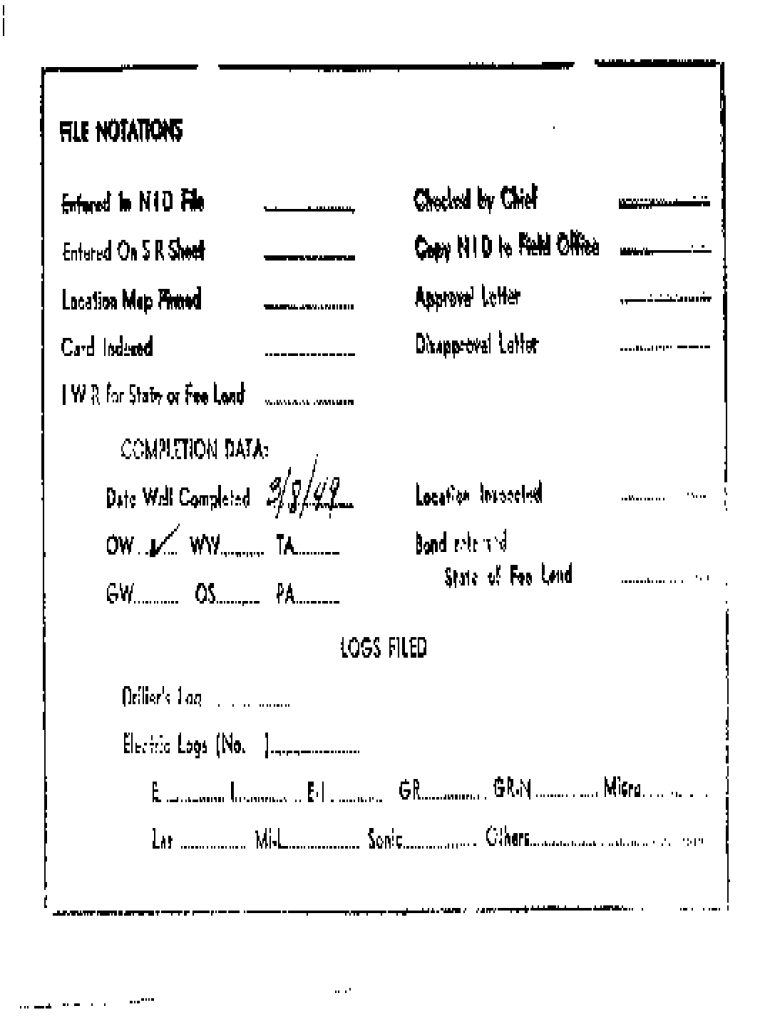 FILE NOTATIONS
Entered in N I D File ............ Checked by Chief ............
Entered On S R Sheet ............ Copy N I D to Field Office ............
Location Map Pinned ............ Approval Letter ............
Card Indexed ............ Disapproval Letter ............
I W R for State or Fee Land ............
COMPLETION DATA:
Date Well Completed 3/8/49 Location Inspected ............
OW ✓ WW............ TA............ Bond released
GW............ OS............ PA............ State of Fee Land ............
LOGS FILED
Driller's Log ............
Electric Logs (No. )............
E ............ I............ E-I ............ GR............ GR-N ............ Micro............
Lat ............ Mi-L............ Sonic............ Others............